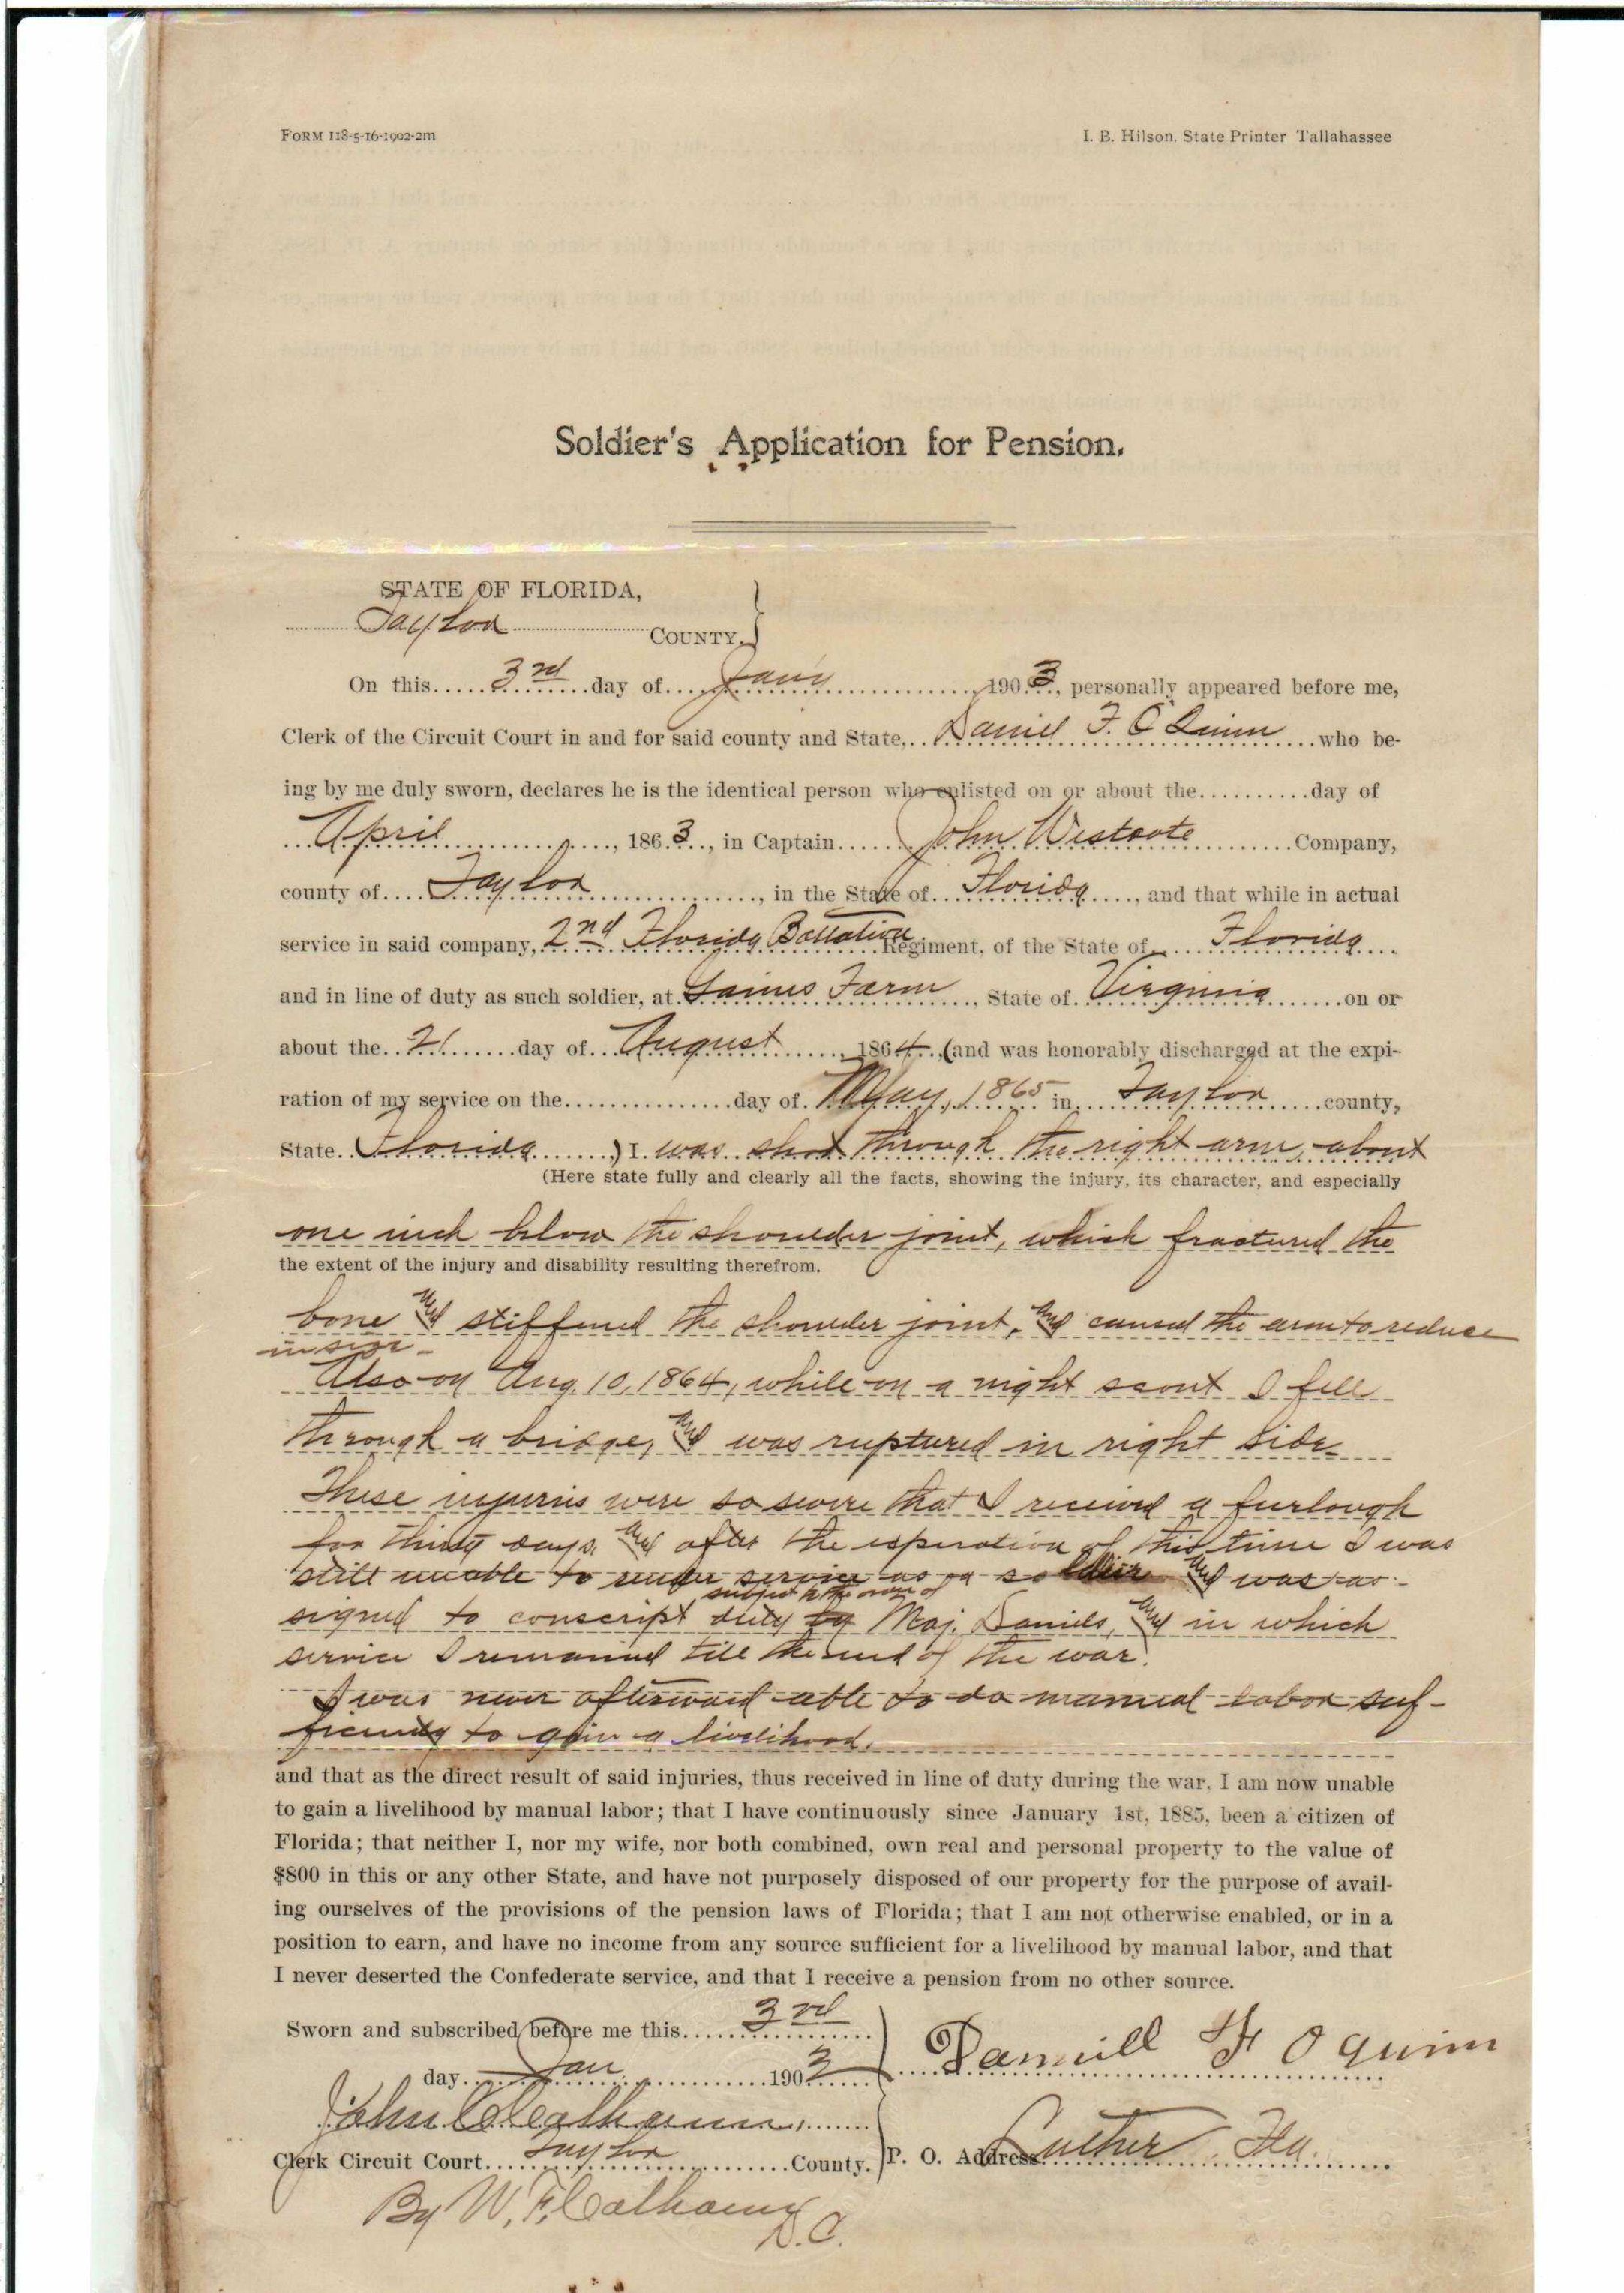 FORM 118-5-16-1902-2m
I. B. Hilson, State Printer Tallahassee
Soldier's Application for Pension.
STATE OF FLORIDA,
Taylor COUNTY.
On this 3rd day of Jan'y 1903, personally appeared before me,
Clerk of the Circuit Court in and for said county and State, Daniel F. O'Quinn who be-
ing by me duly sworn, declares he is the identical person who enlisted on or about the day of
April, 1863, in Captain John Westcote Company,
county of Taylor, in the State of Florida, and that while in actual
service in said company, 2nd Florida Battalion Regiment, of the State of Florida
and in line of duty as such soldier, at Gaines Farm, State of Virginia on or
about the 21 day of August 1864 (and was honorably discharged at the expi-
ration of my service on the day of May, 1865 in Taylor county,
State Florida) I was shot through the right arm, about
(Here state fully and clearly all the facts, showing the injury, its character, and especially
one inch below the shoulder joint, which fractured the
the extent of the injury and disability resulting therefrom.
bone and stiffened the shoulder joint, and caused the arm to reduce
in size -
Also on Aug. 10, 1864, while on a night scout I fell
through a bridge, and was ruptured in right side
These injuries were so severe that I received a furlough
for thirty days, and after the experation of this time I was
still unable to render service as a soldier and was as-
subject to the order of
signed to conscript duty by Maj. Daniels, and in which
service I remained till the end of the war.
I was never afterward able to do manual labor suf-
ficiently to gain a livelihood.
and that as the direct result of said injuries, thus received in line of duty during the war, I am now unable
to gain a livelihood by manual labor; that I have continuously since January 1st, 1885, been a citizen of
Florida; that neither I, nor my wife, nor both combined, own real and personal property to the value of
$800 in this or any other State, and have not purposely disposed of our property for the purpose of avail-
ing ourselves of the provisions of the pension laws of Florida; that I am not otherwise enabled, or in a
position to earn, and have no income from any source sufficient for a livelihood by manual labor, and that
I never deserted the Confederate service, and that I receive a pension from no other source.
Sworn and subscribed before me this 3rd
day Jan 1903
Daniill F OQuinn
John C Calhoun,
Clerk Circuit Court Taylor County.
P. O. Address Luther Fla.
By W. F. Calhoun
D. C.